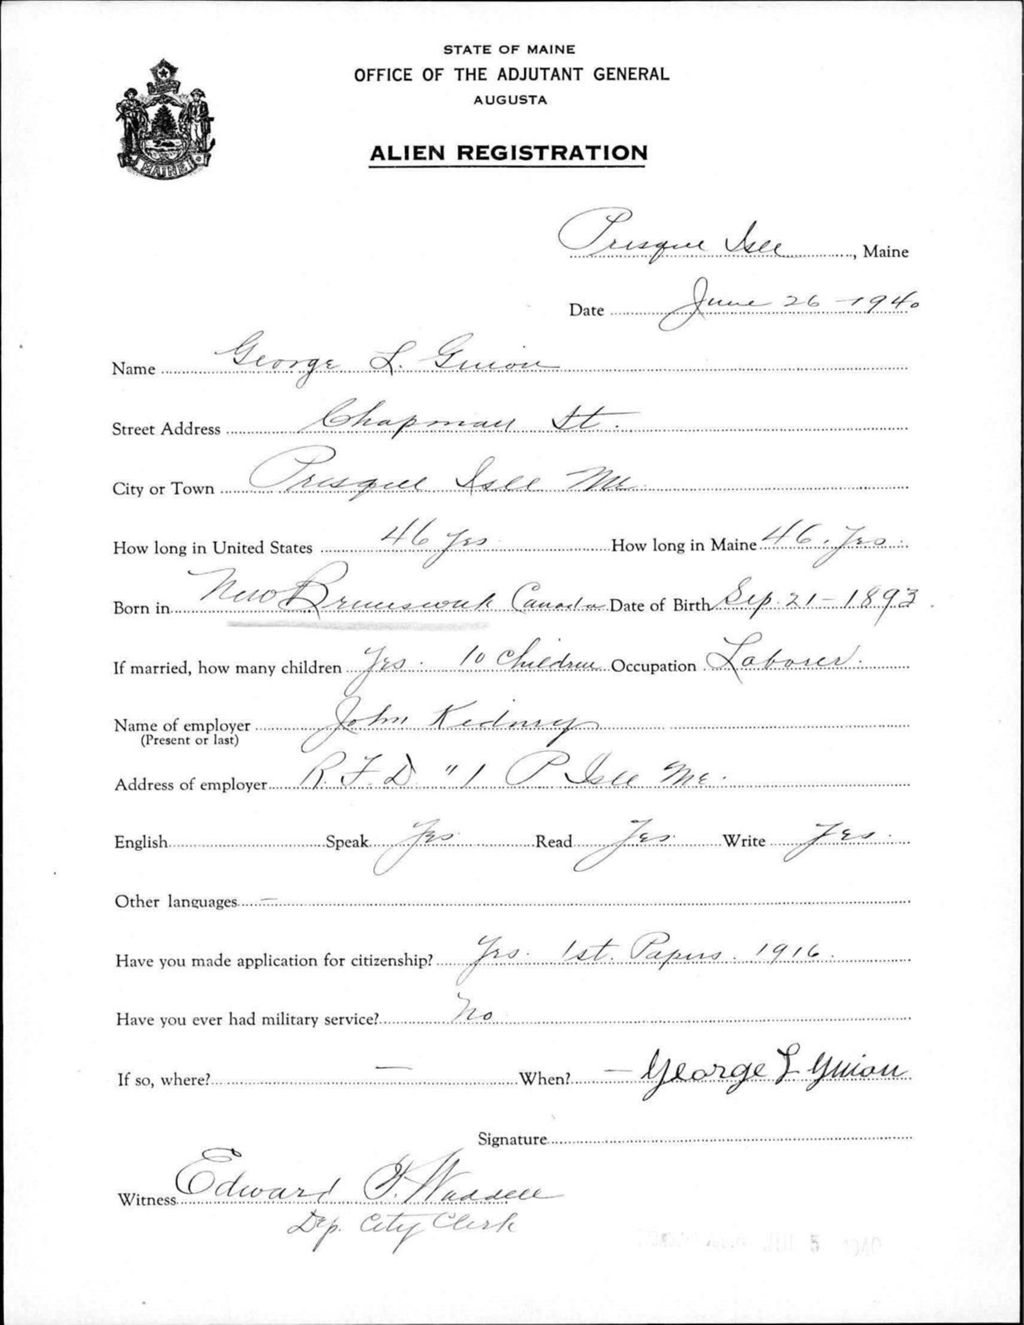 STATE OF MAINE
OFFICE OF THE ADJUTANT GENERAL
AUGUSTA
MAINE
ALIEN REGISTRATION
Presque Isle, Maine
Date June 26 - 1940
Name George L. Guiou
Street Address Chapman St.
City or Town Presque Isle Me.
How long in United States 46 Yrs How long in Maine 46. Yrs.
Born in New Brunswick Canada Date of Birth Sep. 21 - 1893
If married, how many children Yes. 10 Children Occupation Laborer.
Name of employer John Kidney
(Present or last)
Address of employer R.F.D. "1 P Isle Me.
English Speak Yes Read Yes Write Yes.
Other languages —
Have you made application for citizenship? Yes. 1st. Papers. 1916.
Have you ever had military service? No
If so, where? — When? — George L Guiou
Signature
Witness Edward F. Waddell
Dep. City Clerk
5 1940